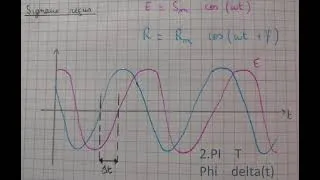 Signaux reçus
E = Sm cos (wt)
R = Rm cos (wt + φ)
E
t
Δt
2.PI T
Phi delta(t)